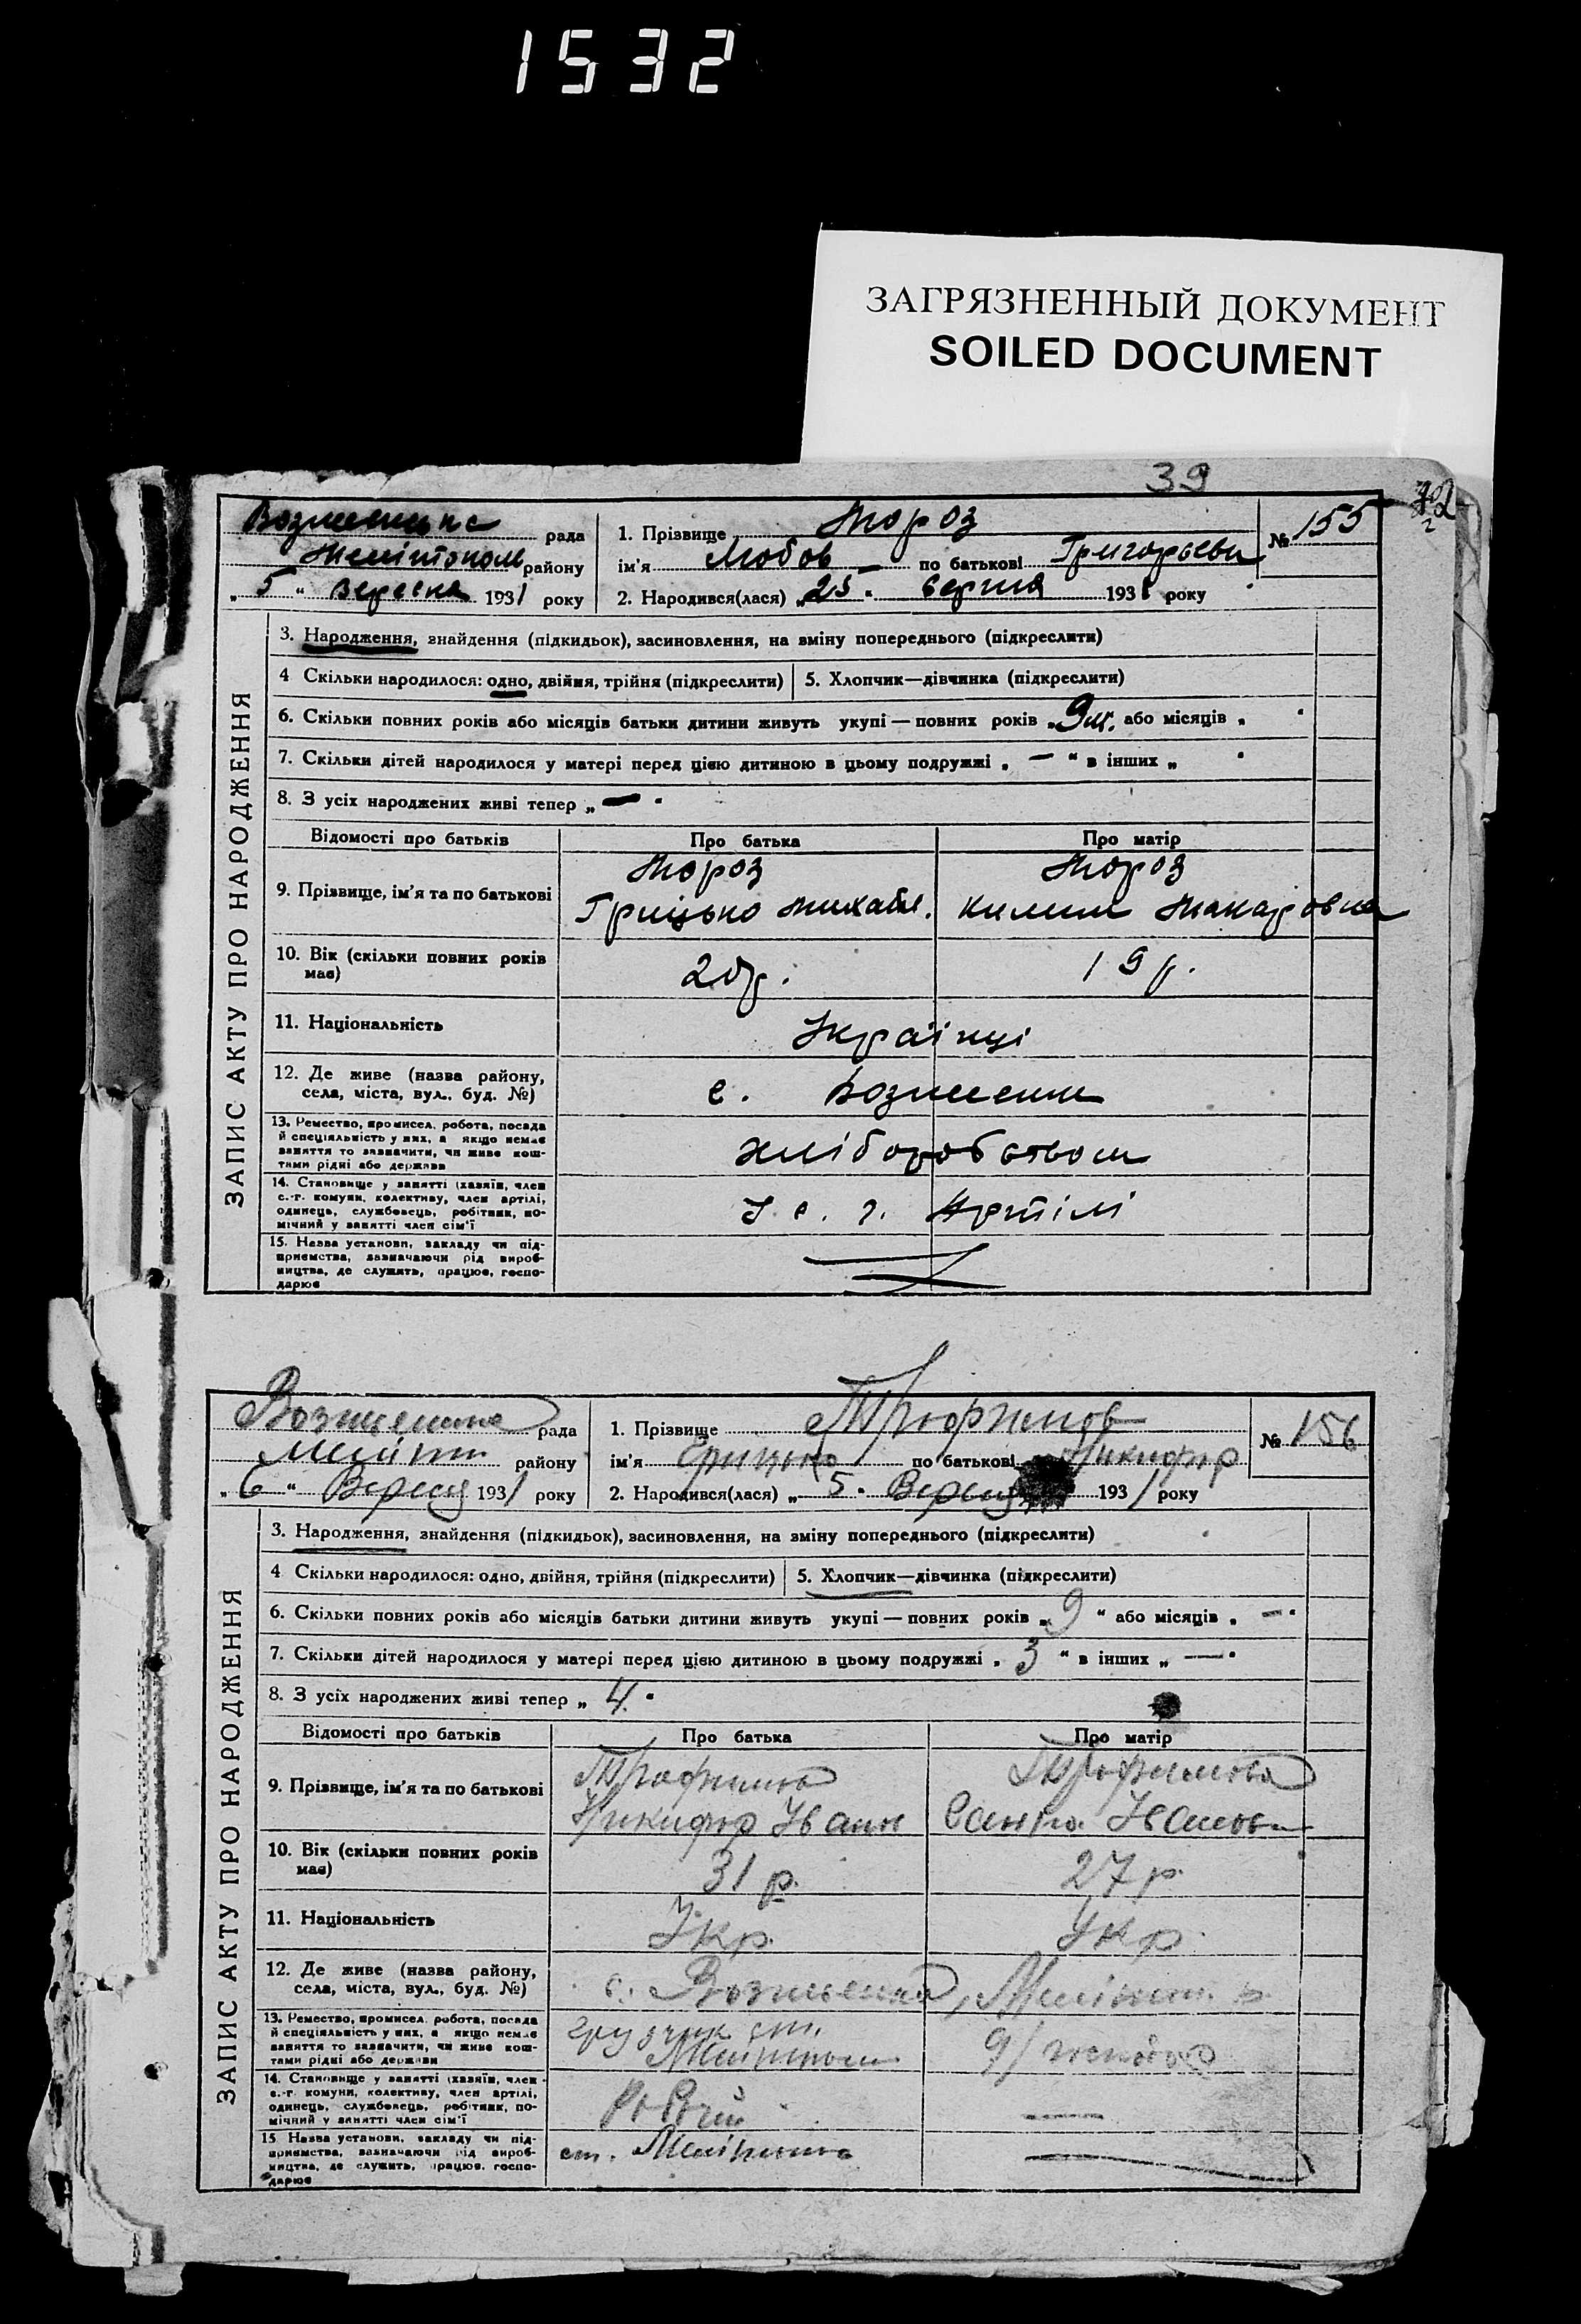 1532
ЗАГРЯЗНЕННЫЙ ДОКУМЕНТ
SOILED DOCUMENT
39
рада
району
„ 5 “ вересня 1931 року
1. Прізвище Мороз
ім'я Любов по батькові
2. Народився(лася) „25“ серпня 1931 року
№ 155
ЗАПИС АКТУ ПРО НАРОДЖЕННЯ
3. Народження, знайдення (підкидьок), засиновлення, на зміну попереднього (підкреслити)
4 Скільки народилося: одно, двійня, трійня (підкреслити)
5. Хлопчик—дівчинка (підкреслити)
6. Скільки повних років або місяців батьки дитини живуть укупі — повних років „9м. або місяців „
7. Скільки дітей народилося у матері перед цією дитиною в цьому подружжі „ — “ в інших „
8. З усіх народжених живі тепер „ — “
Відомості про батьків
Про батька
Про матір
9. Прізвище, ім'я та по батькові
Мороз
Грицько Михайл.
Мороз
Макаровна
10. Вік (скільки повних років
має)
20р.
19р.
11. Національність
Українці
12. Де живе (назва району,
села, міста, вул., буд. №)
с.
13. Ремество, промисел, робота, посада
й спеціяльність у них, а якщо немає
заняття то зазначити, чи живе кош-
тами рідні або держави
хліборобством
14. Становище у занятті (хазяїн, член
с.-г. комуни, колективу, член артілі,
одинець, службовець, робітник, по-
мічний у занятті член сім'ї
У с. г. Артілі
15. Назва установи, закладу чи під-
приємства, зазначаючи рід вироб-
ництва, де служить, працює, госпо-
дарює
рада
району
„ 6 “ 1931 року
1. Прізвище Трофимов
ім'я Грицько по батькові Никифор
2. Народився(лася) „ 5 “ 1931 року
№ 156
ЗАПИС АКТУ ПРО НАРОДЖЕННЯ
3. Народження, знайдення (підкидьок), засиновлення, на зміну попереднього (підкреслити)
4 Скільки народилося: одно, двійня, трійня (підкреслити)
5. Хлопчик—дівчинка (підкреслити)
6. Скільки повних років або місяців батьки дитини живуть укупі — повних років „ 9 “ або місяців „ — “
7. Скільки дітей народилося у матері перед цією дитиною в цьому подружжі „ 3 “ в інших „ — “
8. З усіх народжених живі тепер „ 4 “
Відомості про батьків
Про батька
Про матір
9. Прізвище, ім'я та по батькові
Никифор Іван
Трофимова
10. Вік (скільки повних років
має)
31 р.
27 р.
11. Національність
Укр.
Укр.
12. Де живе (назва району,
села, міста, вул., буд. №)
с.
13. Ремество, промисел, робота, посада
й спеціяльність у них, а якщо немає
заняття то зазначити, чи живе кош-
тами рідні або держави
грузчик ст.
14. Становище у занятті (хазяїн, член
с.-г. комуни, колективу, член артілі,
одинець, службовець, робітник, по-
мічний у занятті член сім'ї
15 Назва установи, закладу чи під-
приємства, зазначаючи рід вироб-
ництва, де служить, працює, госпо-
дарює
ст.